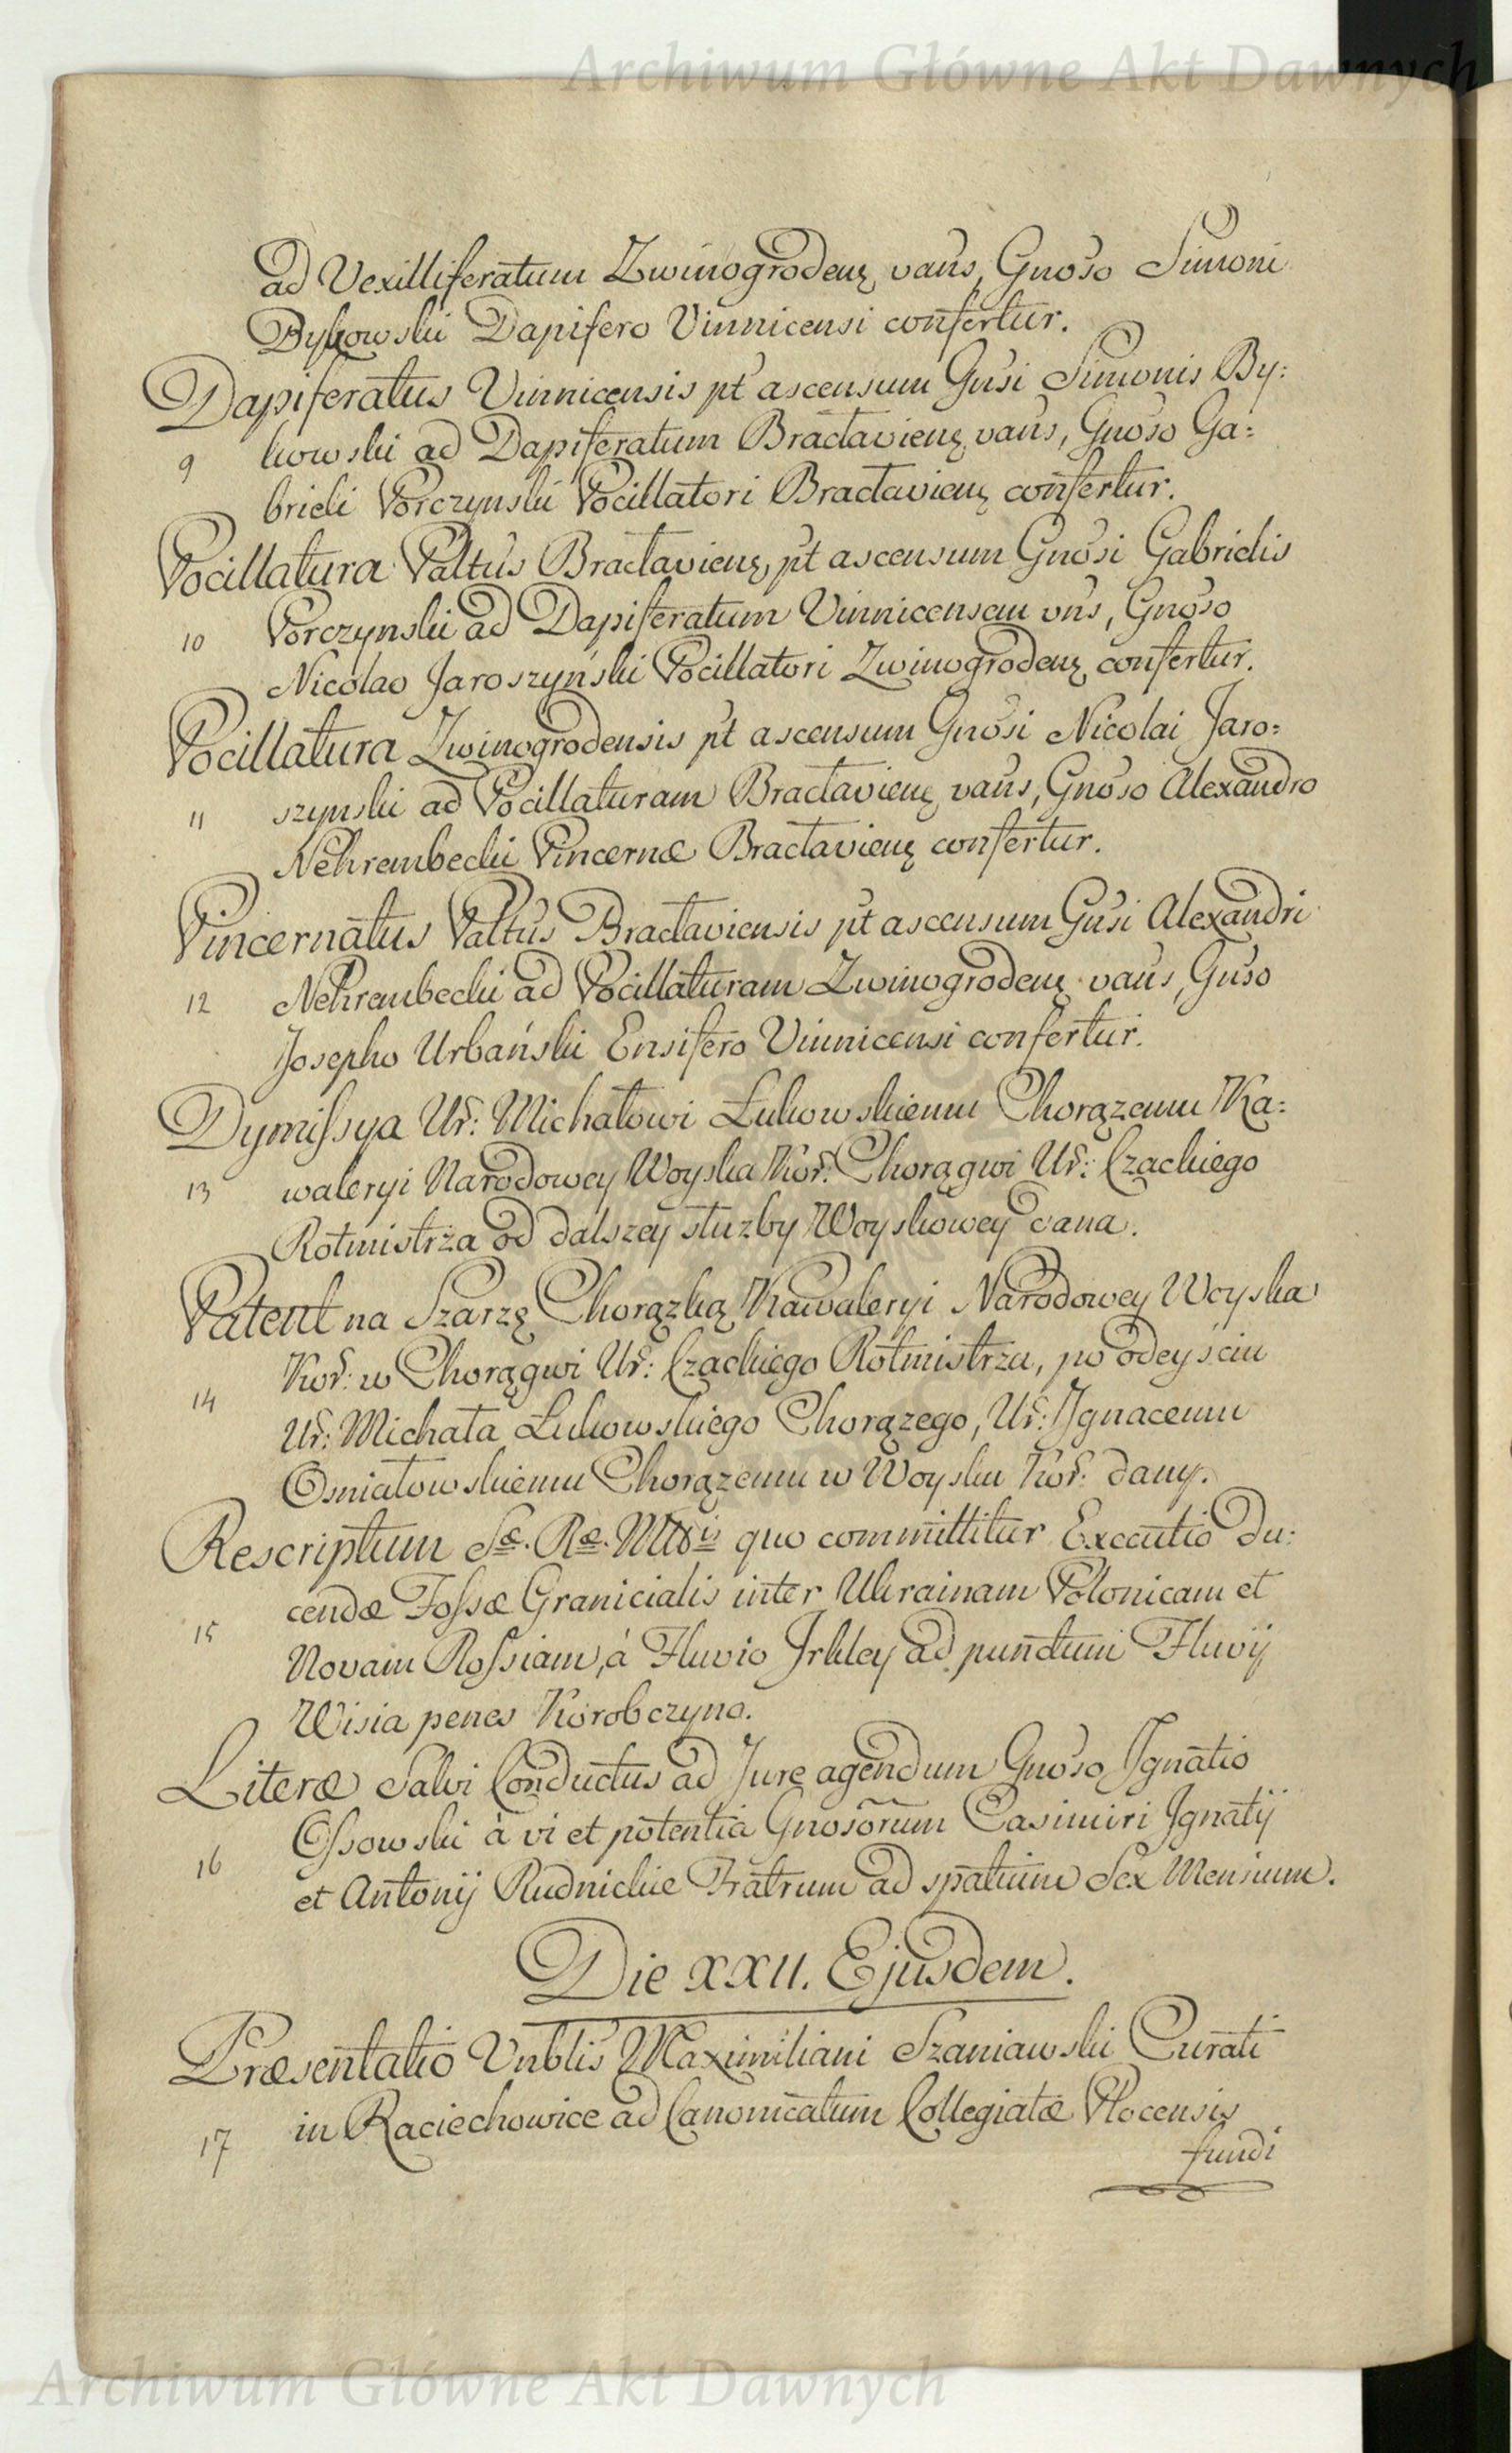 Archiwum Główne Akt Dawnych
ad Vexilliferatum Zwinogrodenꝫ vans, Gnoso Simoni
Bykowski Dapifero Vinnicensi confertur.
Dapiferatus Vinnicensis pt ascensum Gnsi Simonis By:
9 kowski ad Dapiferatum Bractavienꝫ vans, Gnoso Ga:
brieli Porczynski Pocillatori Bractavienꝫ confertur.
Pocillatura Paltus Bractavienꝫ, pt ascensum Gnosi Gabrielis
10 Porczynski ad Dapiferatum Vinnicensem vns, Gnoso
Nicolao Jaroszyński Pocillatori Zwinogrodenꝫ confertur.
Pocillatura Zwinogrodensis pt ascensum Gnosi Nicolai Jaro:
11 szynski ad Pocillaturam Bractavienꝫ vans, Gnoso Alexandro
Nehrembecki Pincernæ Bractavienꝫ confertur.
Pincernatus Paltus Bractaviensis pt ascensum Gnsi Alexandri
12 Nehrembecki ad Pocillaturam Zwinogrodenꝫ vans, Gnso
Josepho Urbański Ensifero Vinnicensi confertur.
Dymissya Ur: Michałowi Łukowskiemu Chorązemu Ka:
13 waleryi Narodowey Woyska Kor: Chorągwi Ur: Czackiego
Rotmistrza od dalszey służby Woyskowey dana.
Patent na Szarzę Chorązką Kawaleryi Narodowey Woyska
Kor: w Chorągwi Ur: Czackiego Rotmistrza, po odeyściu
14 Ur: Michała Łukowskiego Chorązego, Ur: Jgnacemu
Osmiałowskiemu Chorązemu w Woysku Kor: dany.
Rescriptum Sæ. Ræ. Mttis quo committitur Executio du:
cendæ Fossæ Granicialis inter Ukrainam Polonicam et
15 Novam Rossiam, à Fluvio Jrkley ad punctum Fluvij
Wisia penes Korobczyno.
Literæ Salvi Conductus ad Jure agendum Gnoso Jgnatio
16 Ossowski à vi et potentia Gnosorum Casimiri Jgnatij
et Antonij Rudnickie Fratrum ad spatium Sex Mensium.
Die XXII. Ejusdem.
Præsentatio Vnblis Maximiliani Szaniawski Curati
17 in Raciechowice ad Canonicatum Collegiatæ Plocensis
fundi
Archiwum Główne Akt Dawnych